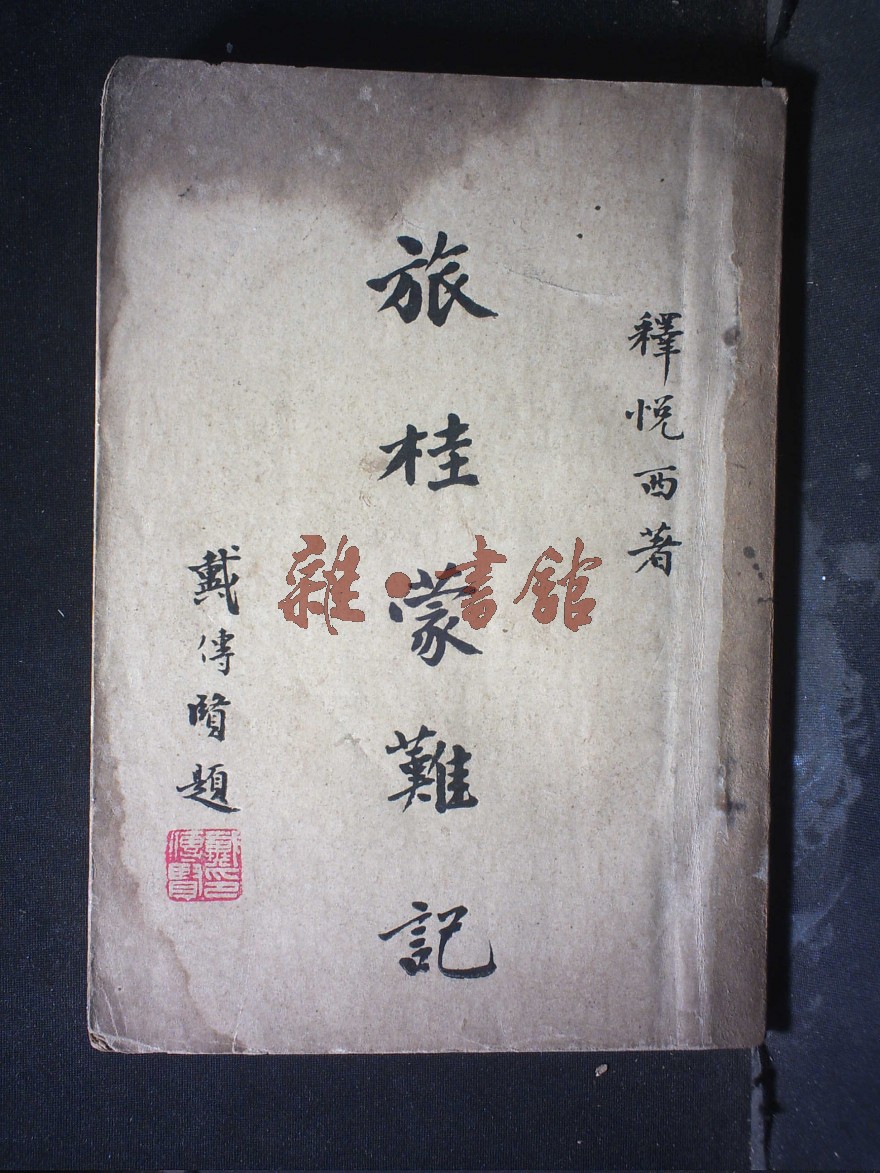 釋悅西著
旅桂蒙難記
戴傳賢題
戴傳賢印
雜·書館